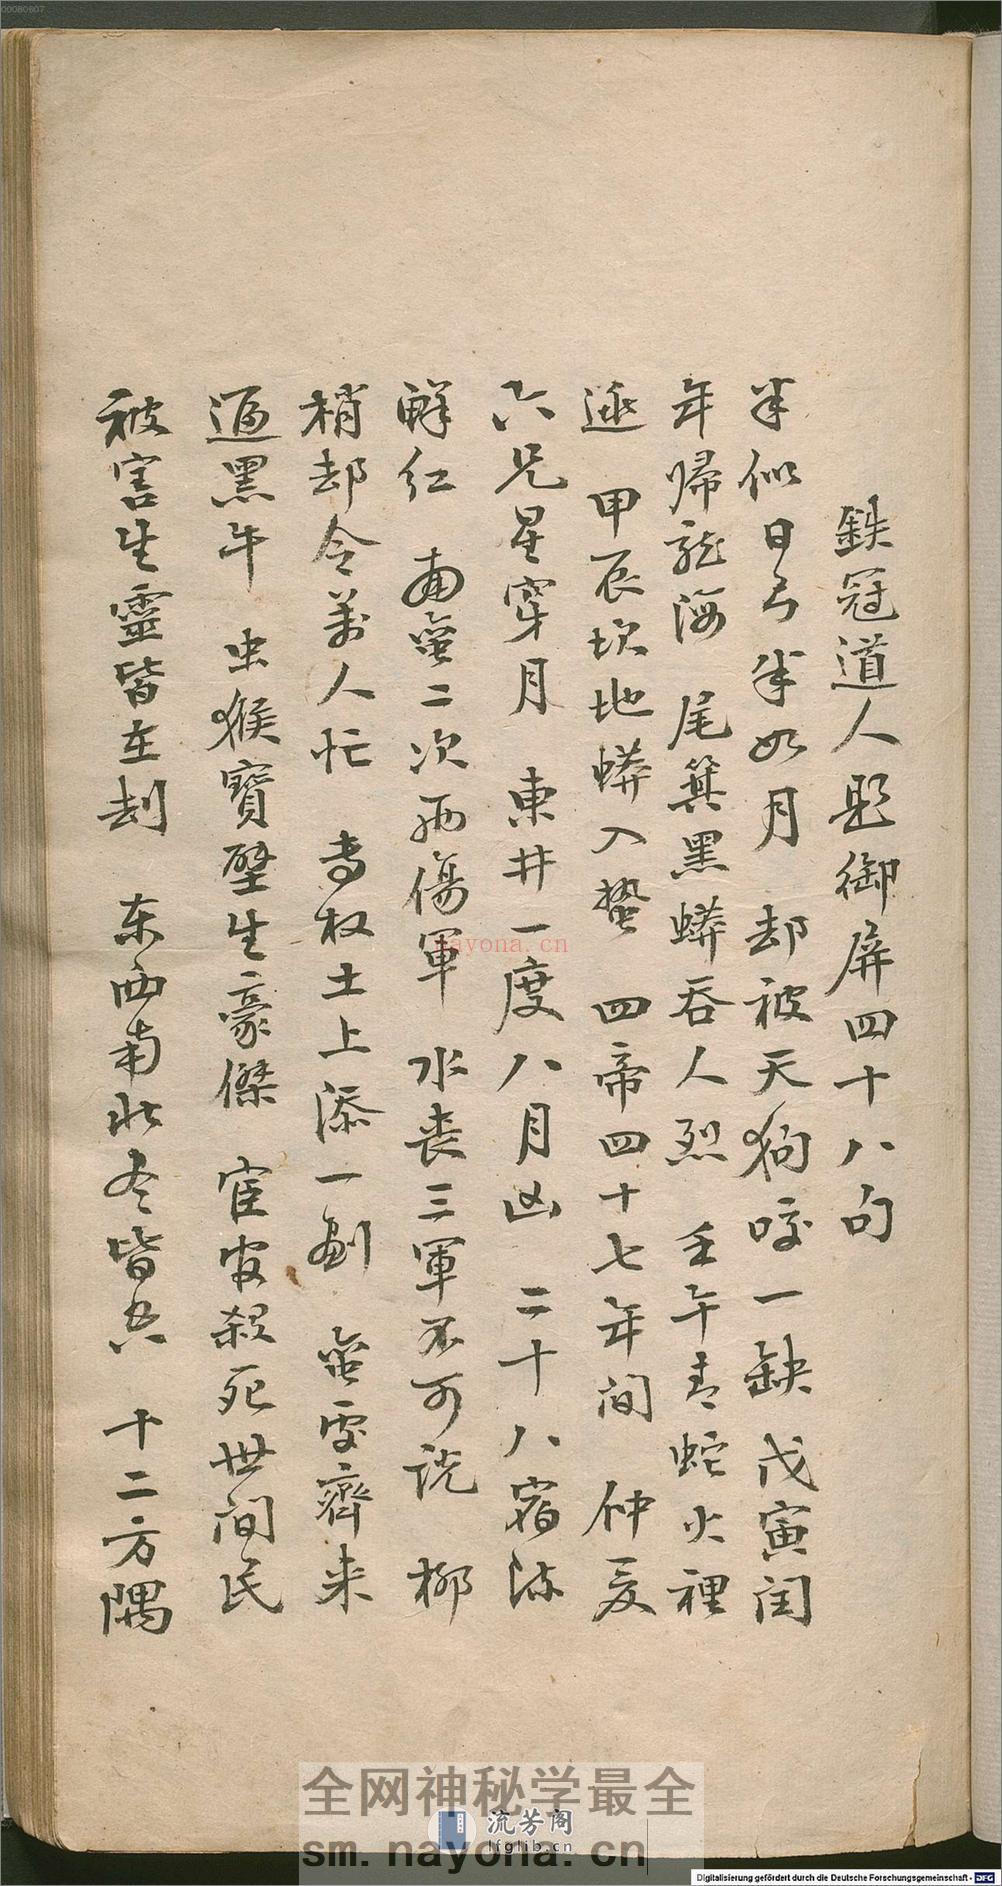 鉄冠道人題御屏四十八句
半似日弓半如月 却被天狗咬一缺 戊寅閏
年帰龍海 尾箕黑蟒吞人烈 壬午青蛇火裡
逃 甲辰坎地蟒入蟄 四帝四十七年间 仲夏
六兄星穿月 東井一度八月凶 二十八宿流
鮮红 南蛮二次两傷軍 水丧三軍不可説 柳
梢却令萬人忙 专权土上添一剑 蛮夷齊来
逼黑牛 虫猴寶璧生豪傑 宦官殺死世间民
被害生靈皆在刦 东西南北冬皆 十二方隅
nayona.cn
全网神秘学最全
流芳阁
lfglib.cn
sm.nayona.cn
Digitalisierung gefördert durch die Deutsche Forschungsgemeinschaft - DFG